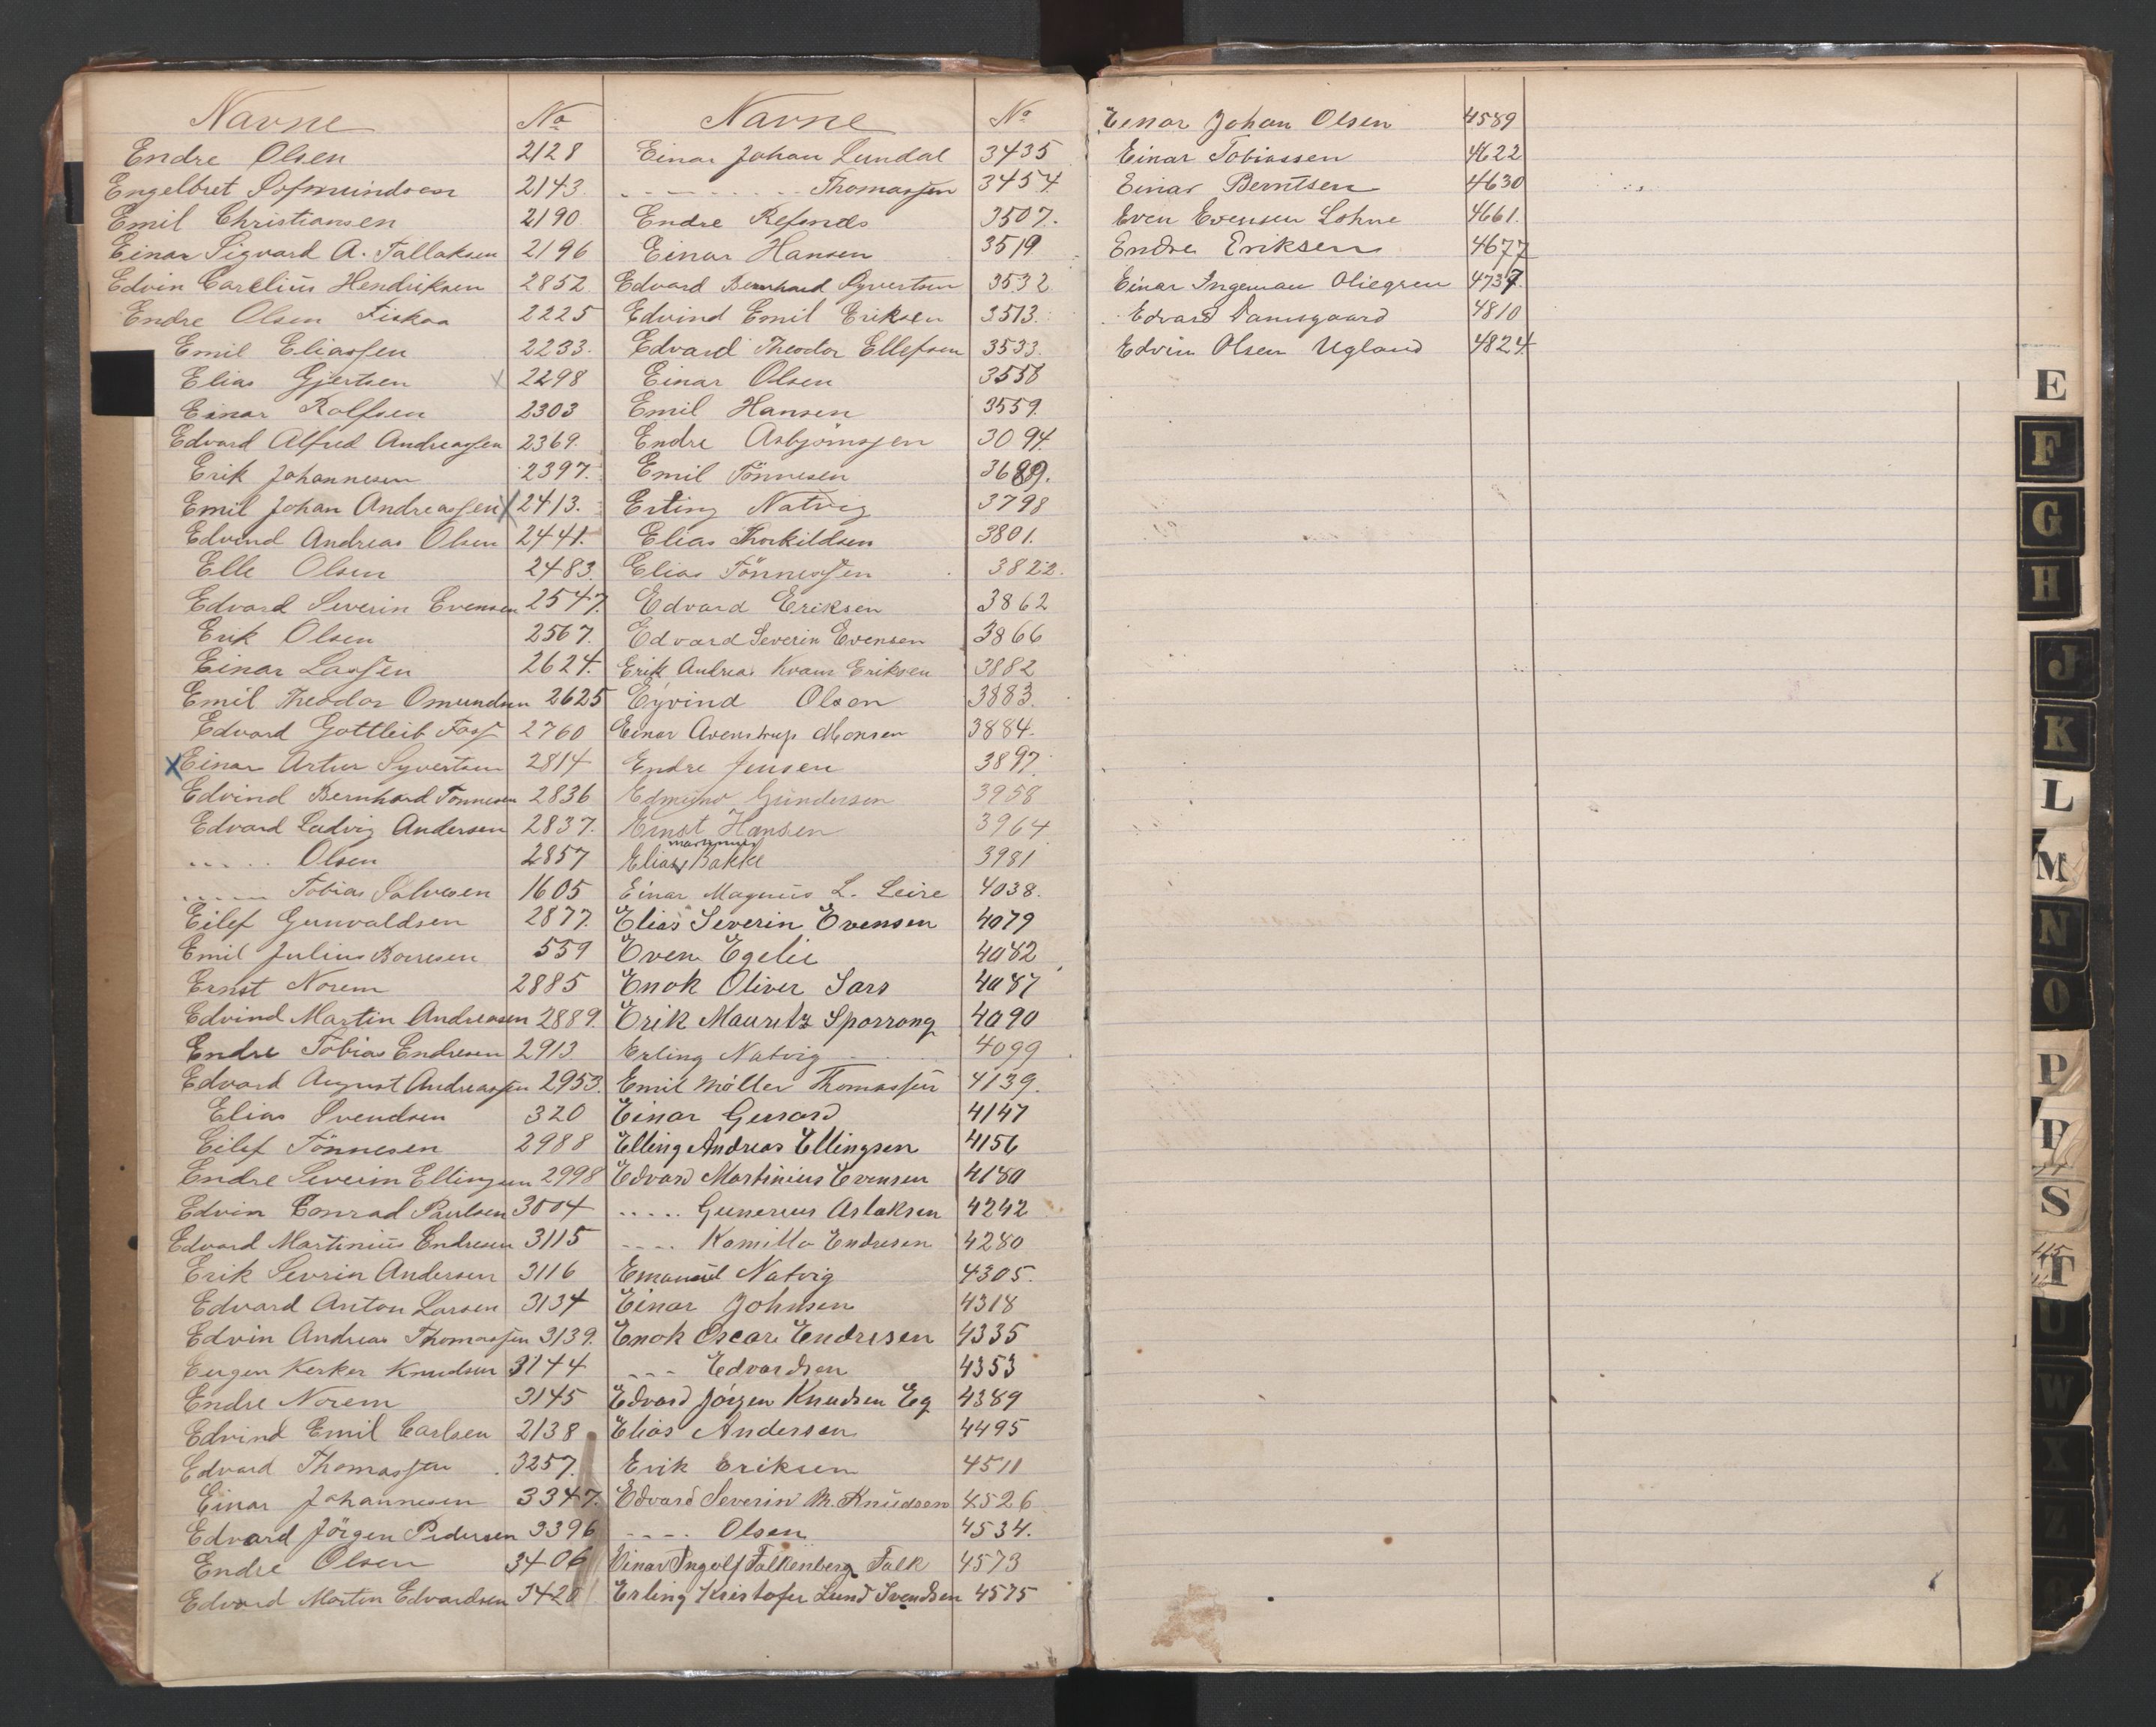 Navne No
Endre Olsen 2128
Engelbret 2143
Emil Christiansen 2190
Einar Sigvard A. Tallaksen 2196
Edvin Carelius Hendriksen 2852
Endre Olsen Fiskaa 2225
Emil Eliassen 2233.
Elias Gjertsen x 2298
Einar Rolfsen 2303
Edvard Alfred Andreassen 2369.
Erik Johannesen 2397.
Emil Johan Andreassen x 2413.
Edvind Andreas Olsen 2441.
Elle Olsen 2483.
Edvard Severin Evensen 2547.
Erik Olsen 2567.
Einar Lassen 2624.
Emil Theodor Omundsen 2625
Edvard Gottleib Foss 2760
x Einar Artur Syvertsen 2814
Edvind Bernhard Tonnesen 2836
Edvard Ludvig Andersen 2837.
..... Olsen 2857
..... Tobias Salvesen 1605
Eilef Gunvaldsen 2877.
Emil Julius Boeresen 559
Ernst Norem 2885
Edvind Martin Andreasen 2889.
Endre Tobias Endresen 2913
Edvard August Andreassen 2953.
Elias Svendsen 320
Eilef Tönnesen 2988
Endre Severin Ellingsen 2998
Edvin Conrad Paulsen 3004
Edvard Martinius Endresen 3115
Erik Sevrin Andersen 3116
Edvard Anton Larsen 3134
Edvin Andreas Thomassen 3139.
Eugen Kerker Knudsen 3144
Endre Norem 3145
Edvind Emil Carlsen 2138
Edvard Thomassen 3257.
Einar Johannesen 3347.
Edvard Jörgen Pedersen 3396
Endre Olsen 3406
Edvard Martin Edvardsen 3420
Navne No
Einar Johan Lundal 3435
......... Thomassen 3454
Endre Refsnes 3507.
Einar Hansen 3519
Edvard Bernhard Syvertsen 3532
Edvind Emil Eriksen 3513.
Edvard Theodor Ellefsen 3533.
Einar Olsen 3558
Emil Hansen 3559.
Endre Asbjörnssen 3094.
Emil Tönnesen 3689.
Erling Natvig 3798
Elias Thorkildsen 3801.
Elias Tönnessen 3822.
Edvard Eriksen 3862
Edvard Severin Evensen 3866
Erik Andreas Kvam Eriksen 3882
Eyvind Olsen 3883.
Einar Avenstrup Monsen 3884.
Endre Jensen 3897.
Edmund Gundersen 3958
Ernst Hansen 3964
Elias Martinius Bakke 3981
Einar Magnus L. Leire 4038.
Elias Severin Evensen 4079
Even Egelie 4082
Enok Oliver Sars 4087
Erik Mauritz Sporrong 4090
Erling Natvig 4099
Emil Möller Thomassen 4139.
Einar Gerrard 4147
Elling Andreas Ellingsen 4156
Edvard Martinius Evensen 4180
..... Gunerius Aslaksen 4242
.... Kamillo Endresen 4280
Emanuel Natvig 4305.
Einar Johnsen 4318
Enok Oscar Endresen 4335
--- Edvardsen 4353
Edvard Jörgen Knudsen Eg 4389
Elias Andersen 4495
Erik Eriksen 4511
Edvard Severin M. Knudsen 4526
.... Olsen 4534.
Einar Ingolf Falkenberg Falk 4573
Erling Kristofer Lund Svendsen 4575
Einar Johan Olsen 4589
Einar Tobiassen 4622
Einar Berntsen 4630
Even Evensen Lohne 4661.
Endre Eriksen 4677
Einar Ingeman Oliegren 4737.
Edvard Damsgaard 4810
Edvin Olsen Ugland 4824
E
F
G
H
J
K
L
M
N
O
P
S
T
U
W
X
Z